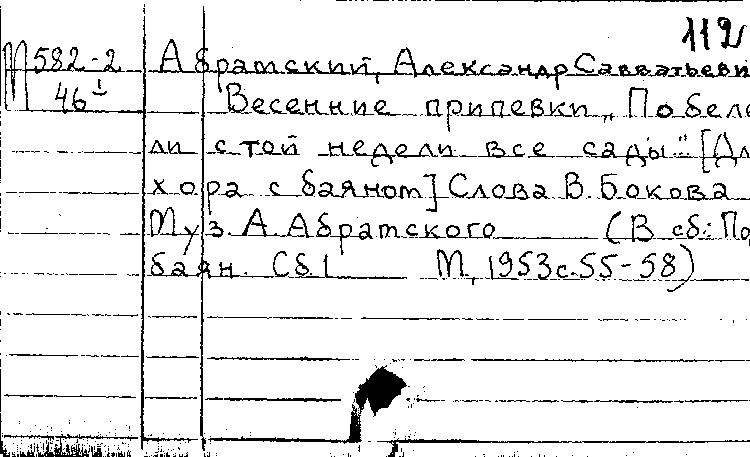 112
М582-2 Абратский, Александр Савватьеви
46 1 Весенние припевки „Побеле
ли с той недели все сады." [Дл
хора с баяном] Слова В. Бокова
Муз. А. Абратского (В сб.: Под
баян. Сб. 1 М, 1953 с. 55-58)